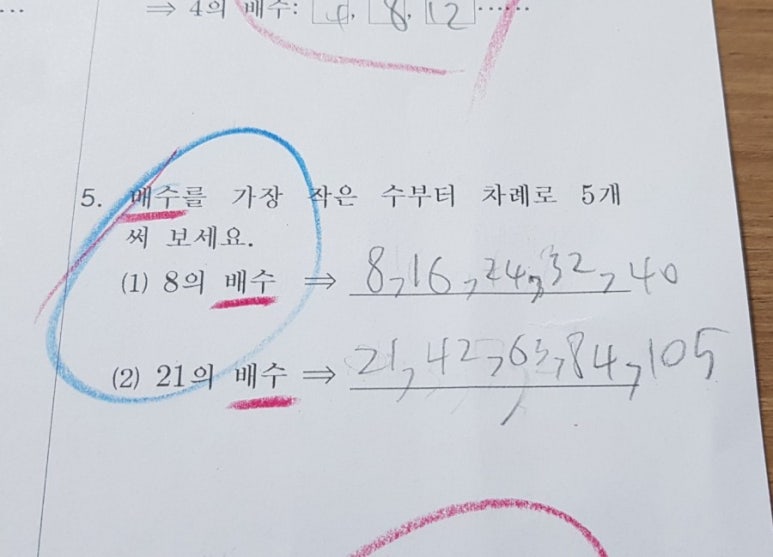 ⇒ 4의 배수: 4, 8, 12 ······
5. 배수를 가장 작은 수부터 차례로 5개
써 보세요.
(1) 8의 배수 ⇒ 8, 16, 24, 32, 40
(2) 21의 배수 ⇒ 21, 42, 63, 84, 105